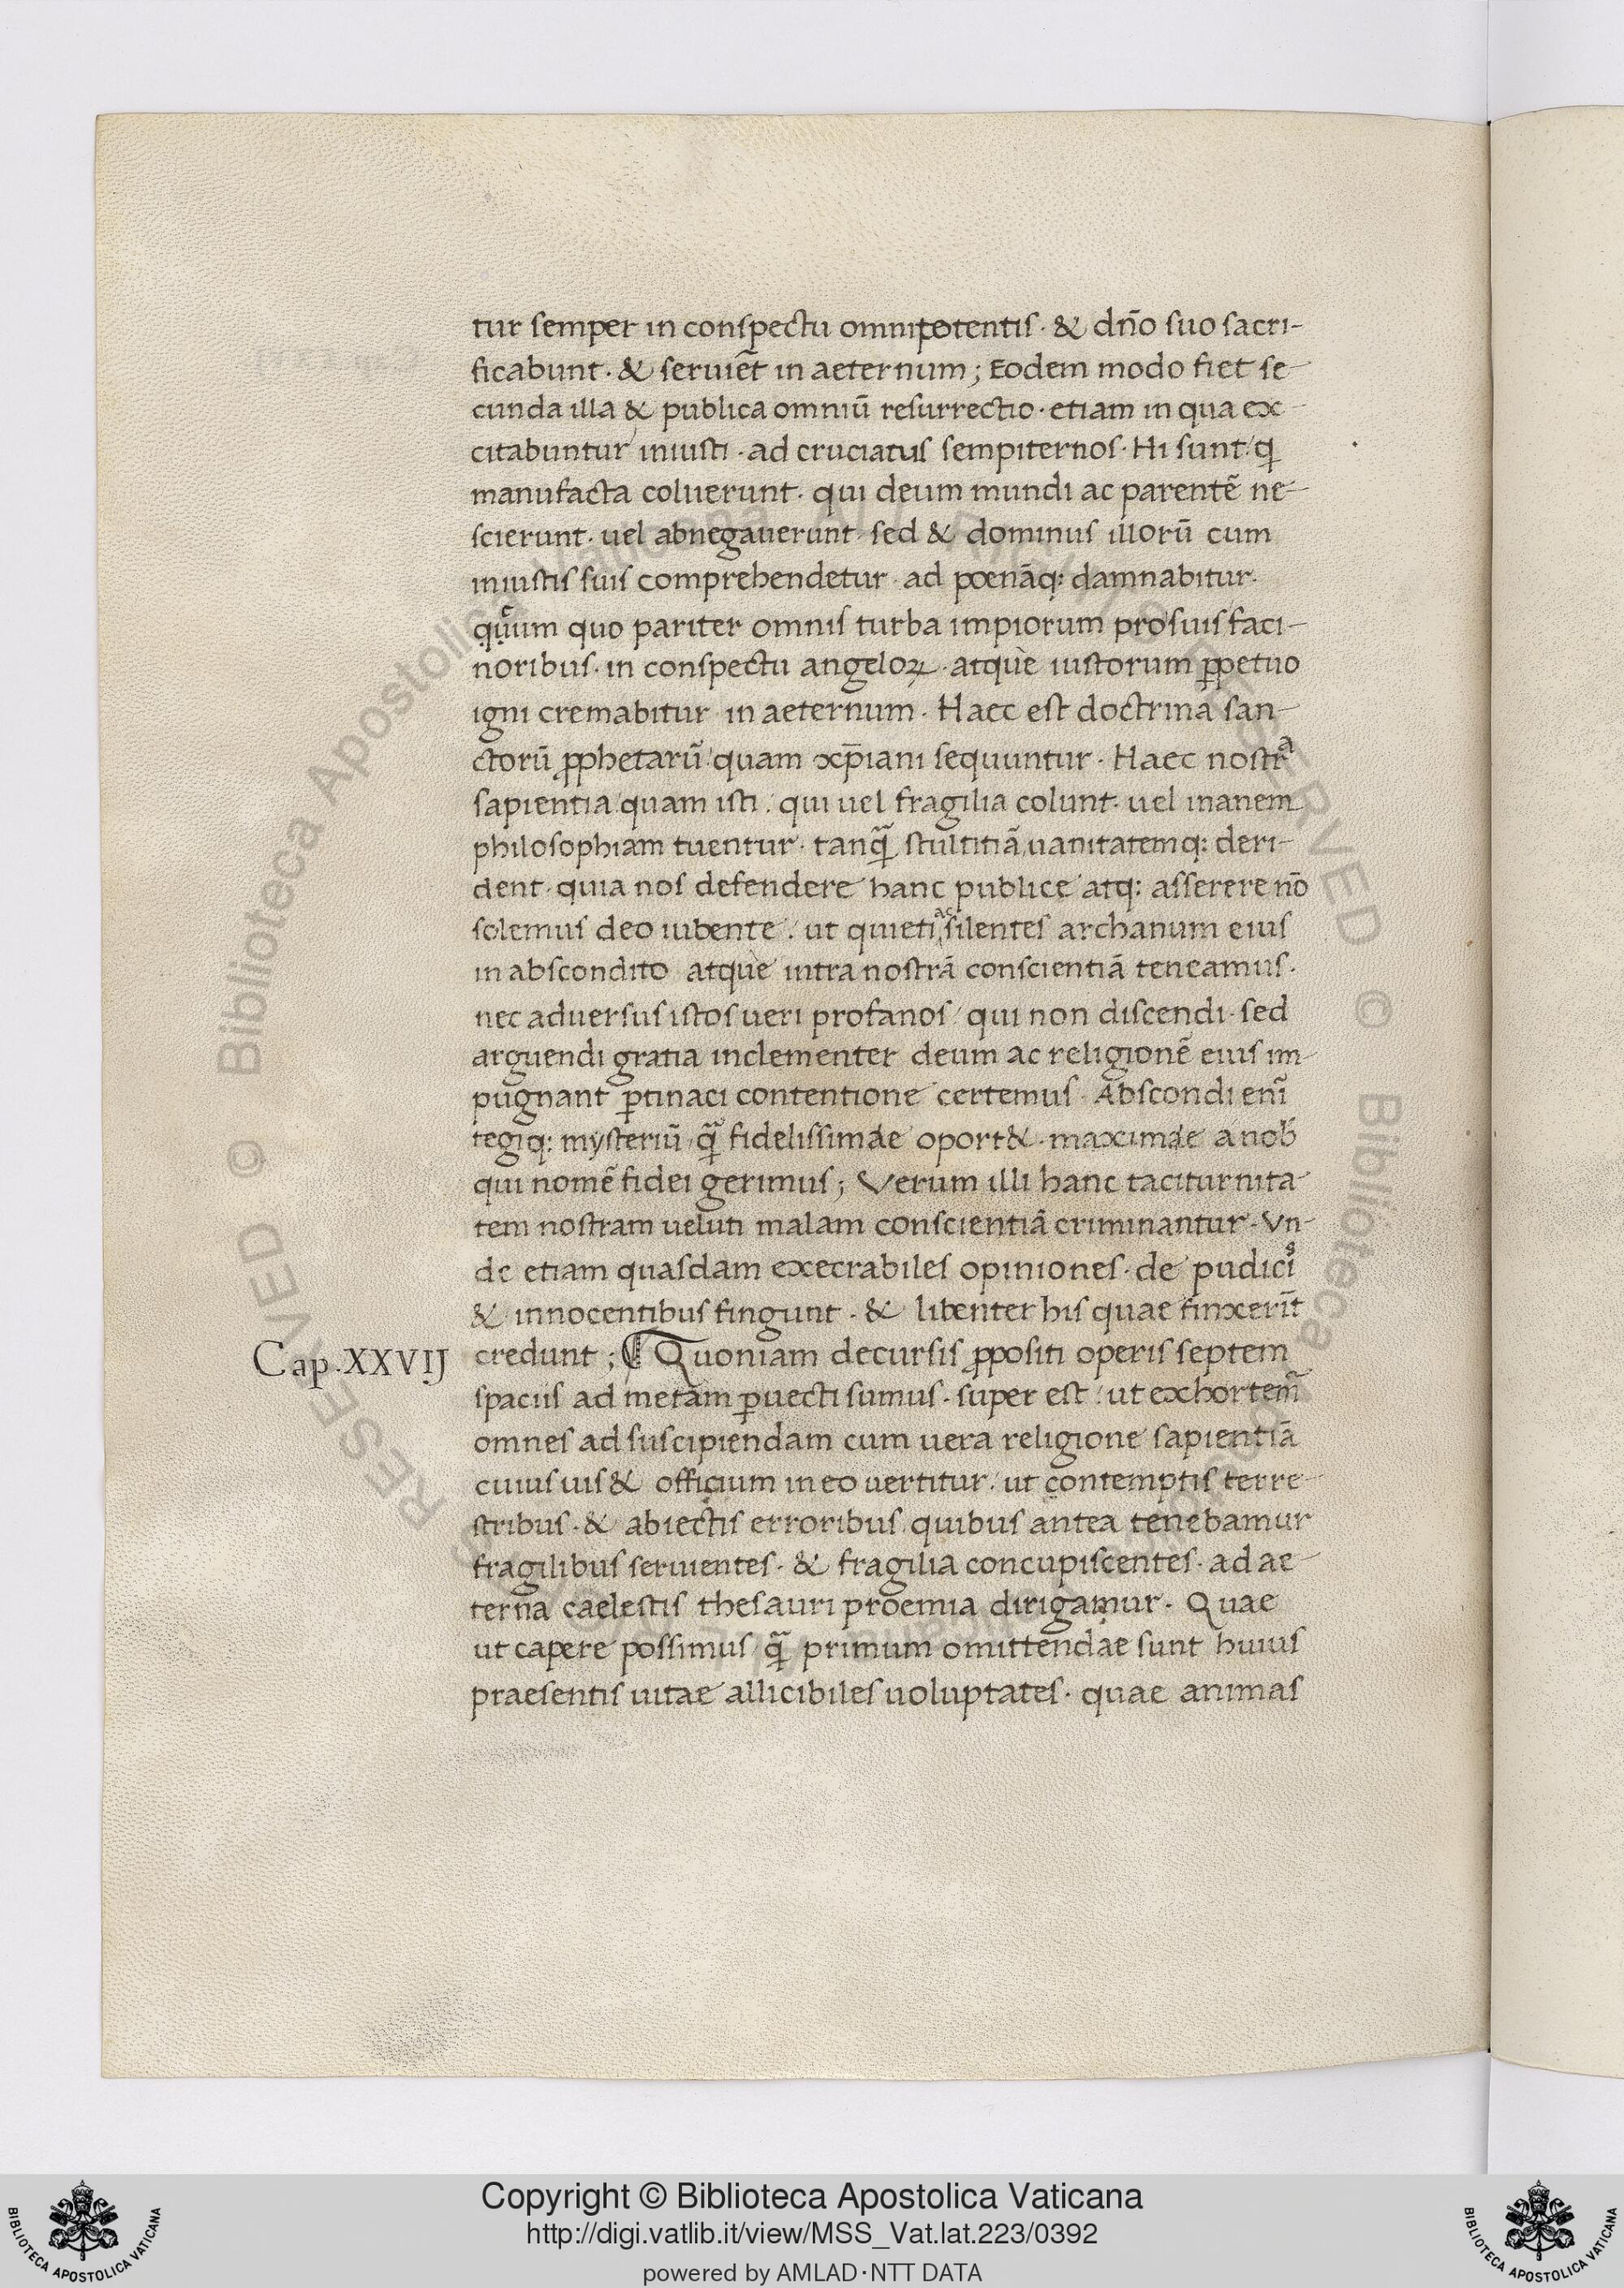 tur semper in conspectu omnipotentis · & dño suo sacri-
ficabunt · & seruiẽt in aeternum ; Eodem modo fiet se-
cunda illa & publica omniũ resurrectio · etiam in qua ex-
citabuntur iniusti · ad cruciatus sempiternos · Hi sunt / qͥ
manufacta coluerunt · qui deum mundi ac parentẽ ne-
scierunt · uel abnegauerunt · sed & dominus illorũ cum
iniustis suis comprehendetur · ad poenãq: damnabitur ·
quum quo pariter omnis turba impiorum pro suis faci-
noribus · in conspectu angeloꝝ · atque iustorum ꝑpetuo
igni cremabitur in aeternum · Haec est doctrina san-
ctorũ ꝓphetarũ / quam xp̃iani sequuntur · Haec nostra
sapientia / quam isti / qui uel fragilia colunt · uel inanem
philosophiam tuentur · tanq̃ stultitiã uanitatemq: deri-
dent · quia nos defendere hanc publice atq: asserere nõ
solemus deo iubente / ut quieti ac silentes archanum eius
in abscondito atque intra nostrã conscientiã teneamus ·
nec aduersus istos ueri profanos / qui non discendi · sed
arguendi gratia inclementer deum ac religionẽ eius im-
pugnant ꝑtinaci contentione certemus · Abscondi enĩ
tegiq: mysteriũ q̃ fidelissimae oport& · maximae a nob̃
qui nomẽ fidei gerimus ; Verum illi hanc taciturnita-
tem nostram ueluti malam conscientiã criminantur · Vn-
de etiam quasdam execrabiles opiniones · de pudicis
& innocentibus fingunt · & libenter his quae finxerĩt
Cap · XXVIJ credunt ; ¶ Quoniam decursis ꝓpositi operis septem
spaciis ad metam ꝑuecti sumus · super est / ut exhortem̃
omnes ad suscipiendam cum uera religione sapientiã
cuius uis & officium in eo uertitur / ut contemptis terre-
stribus · & abiectis erroribus quibus antea tenebamur
fragilibus seruientes · & fragilia concupiscentes · ad ae-
terna caelestis thesauri proemia dirigamur · Quae
ut capere possimus / q̃ primum omittendae sunt huius
praesentis uitae allicibiles uoluptates · quae animas
RESERVED © Biblioteca Apostolica
RESERVED © Biblioteca
BIBLIOTECA APOSTOLICA VATICANA
Copyright © Biblioteca Apostolica Vaticana
http://digi.vatlib.it/view/MSS_Vat.lat.223/0392
powered by AMLAD·NTT DATA
BIBLIOTECA APOSTOLICA VATICANA